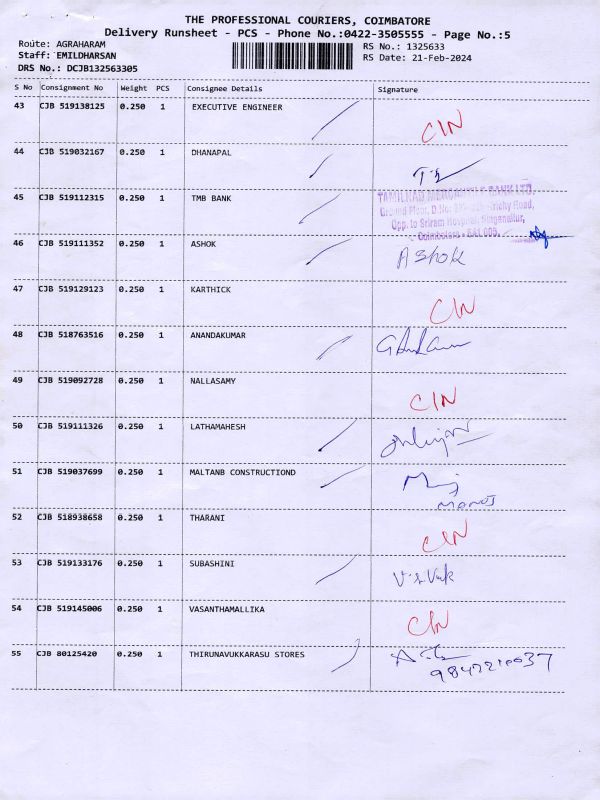 THE PROFESSIONAL COURIERS, COIMBATORE
Delivery Runsheet - PCS - Phone No.:0422-3505555 - Page No.:5
Route: AGRAHARAM
RS No.: 1325633
Staff: EMILDHARSAN
RS Date: 21-Feb-2024
DRS No.: DCJB132563305
S No Consignment No Weight PCS Consignee Details Signature
43 CJB 519138125 0.250 1 EXECUTIVE ENGINEER
CIN
44 CJB 519032167 0.250 1 DHANAPAL
45 CJB 519112315 0.250 1 TMB BANK
TAMILNAD MERCANTILE BANK LTD,
Ground Floor, D.No: Trichy Road,
Opp. to Sriram Hospital, Singanallur,
Coimbatore - 641 005.
46 CJB 519111352 0.250 1 ASHOK
AShok
47 CJB 519129123 0.250 1 KARTHICK
CIN
48 CJB 518763516 0.250 1 ANANDAKUMAR
49 CJB 519092728 0.250 1 NALLASAMY
CIN
50 CJB 519111326 0.250 1 LATHAMAHESH
51 CJB 519037699 0.250 1 MALTANB CONSTRUCTIOND
52 CJB 518938658 0.250 1 THARANI
CIN
53 CJB 519133176 0.250 1 SUBASHINI
54 CJB 519145006 0.250 1 VASANTHAMALLIKA
CIN
55 CJB 80125420 0.250 1 THIRUNAVUKKARASU STORES
9842210037